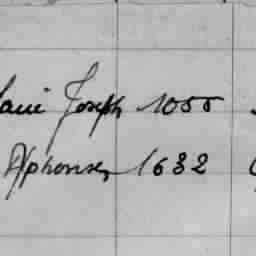 Joseph 1055
Alphonse, 1632